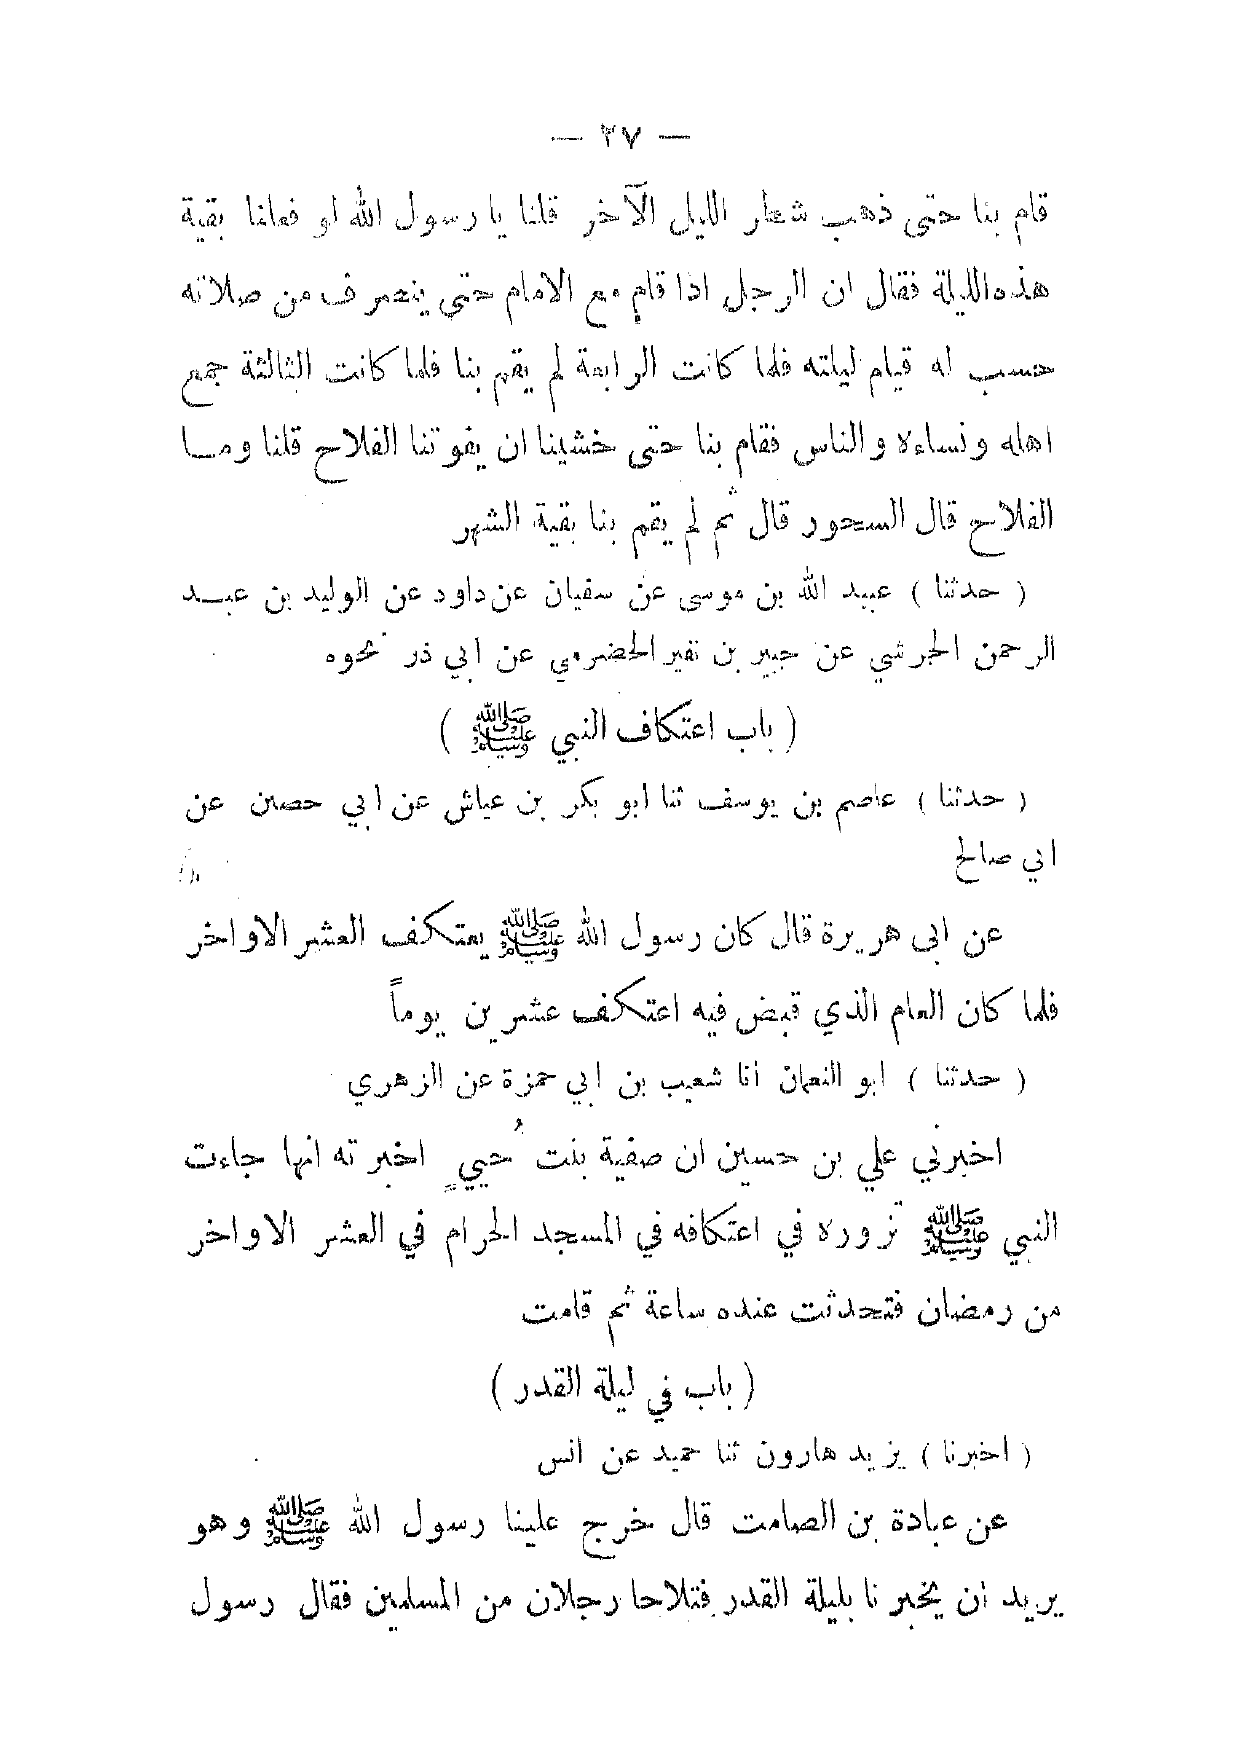 — ٢٧ —
قام بنا حتى ذهب شطر الليل الآخر قلنا يا رسول الله لو نفلتنا بقية
هذه الليلة فقال ان الرجل اذا قام مع الامام حتى ينصرف من صلاته
حسب له قيام ليلته فلما كانت الرابعة لم يقم بنا فلما كانت الثالثة جمع
اهله ونساءه والناس فقام بنا حتى خشينا ان يفوتنا الفلاح قلنا وما
الفلاح قال السحور قال ثم لم يقم بنا بقية الشهر
( حدثنا ) عبيد الله بن موسى عن سفيان عن داود عن الوليد بن عبد
الرحمن الجرشي عن جبير بن نفير الحضرمي عن ابي ذر نحوه
( باب اعتكاف النبي ﷺ )
( حدثنا ) عاصم بن يوسف ثنا ابو بكر بن عياش عن ابي حصين عن
ابي صالح
عن ابى هريرة قال كان رسول الله ﷺ يعتكف العشر الاواخر
فلما كان العام الذي قبض فيه اعتكف عشرين يوماً
( حدثنا ) ابو النعمان انا شعيب بن ابي حمزة عن الزهري
اخبرني علي بن حسين ان صفية بنت حُييٍ اخبرته انها جاءت
النبي ﷺ تزوره في اعتكافه في المسجد الحرام في العشر الاواخر
من رمضان فتحدثت عنده ساعة ثم قامت
( باب في ليلة القدر )
( اخبرنا ) يزيد هارون ثنا حميد عن انس
عن عبادة بن الصامت قال خرج علينا رسول الله ﷺ وهو
يريد ان يخبرنا بليلة القدر فتلاحا رجلان من المسلمين فقال رسول